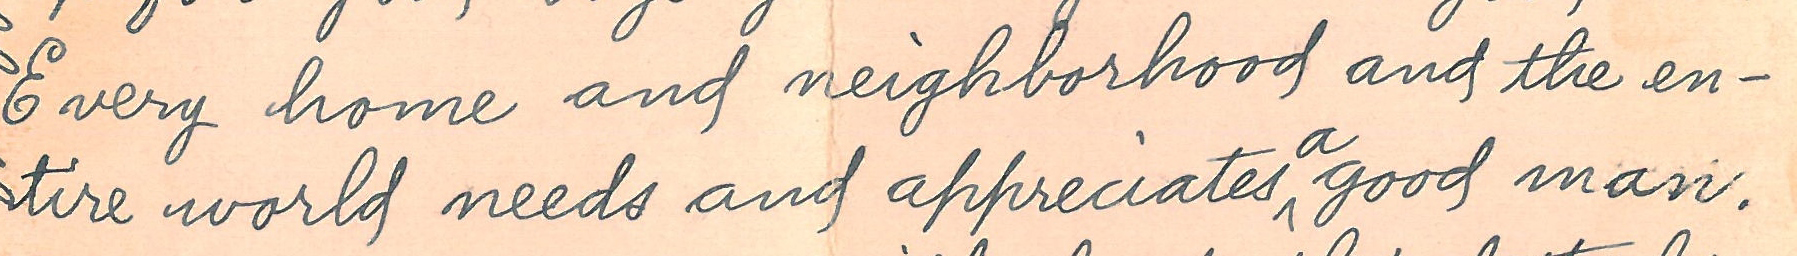 Every home and neighborhood and the en-
tire world needs and appreciates a good man.